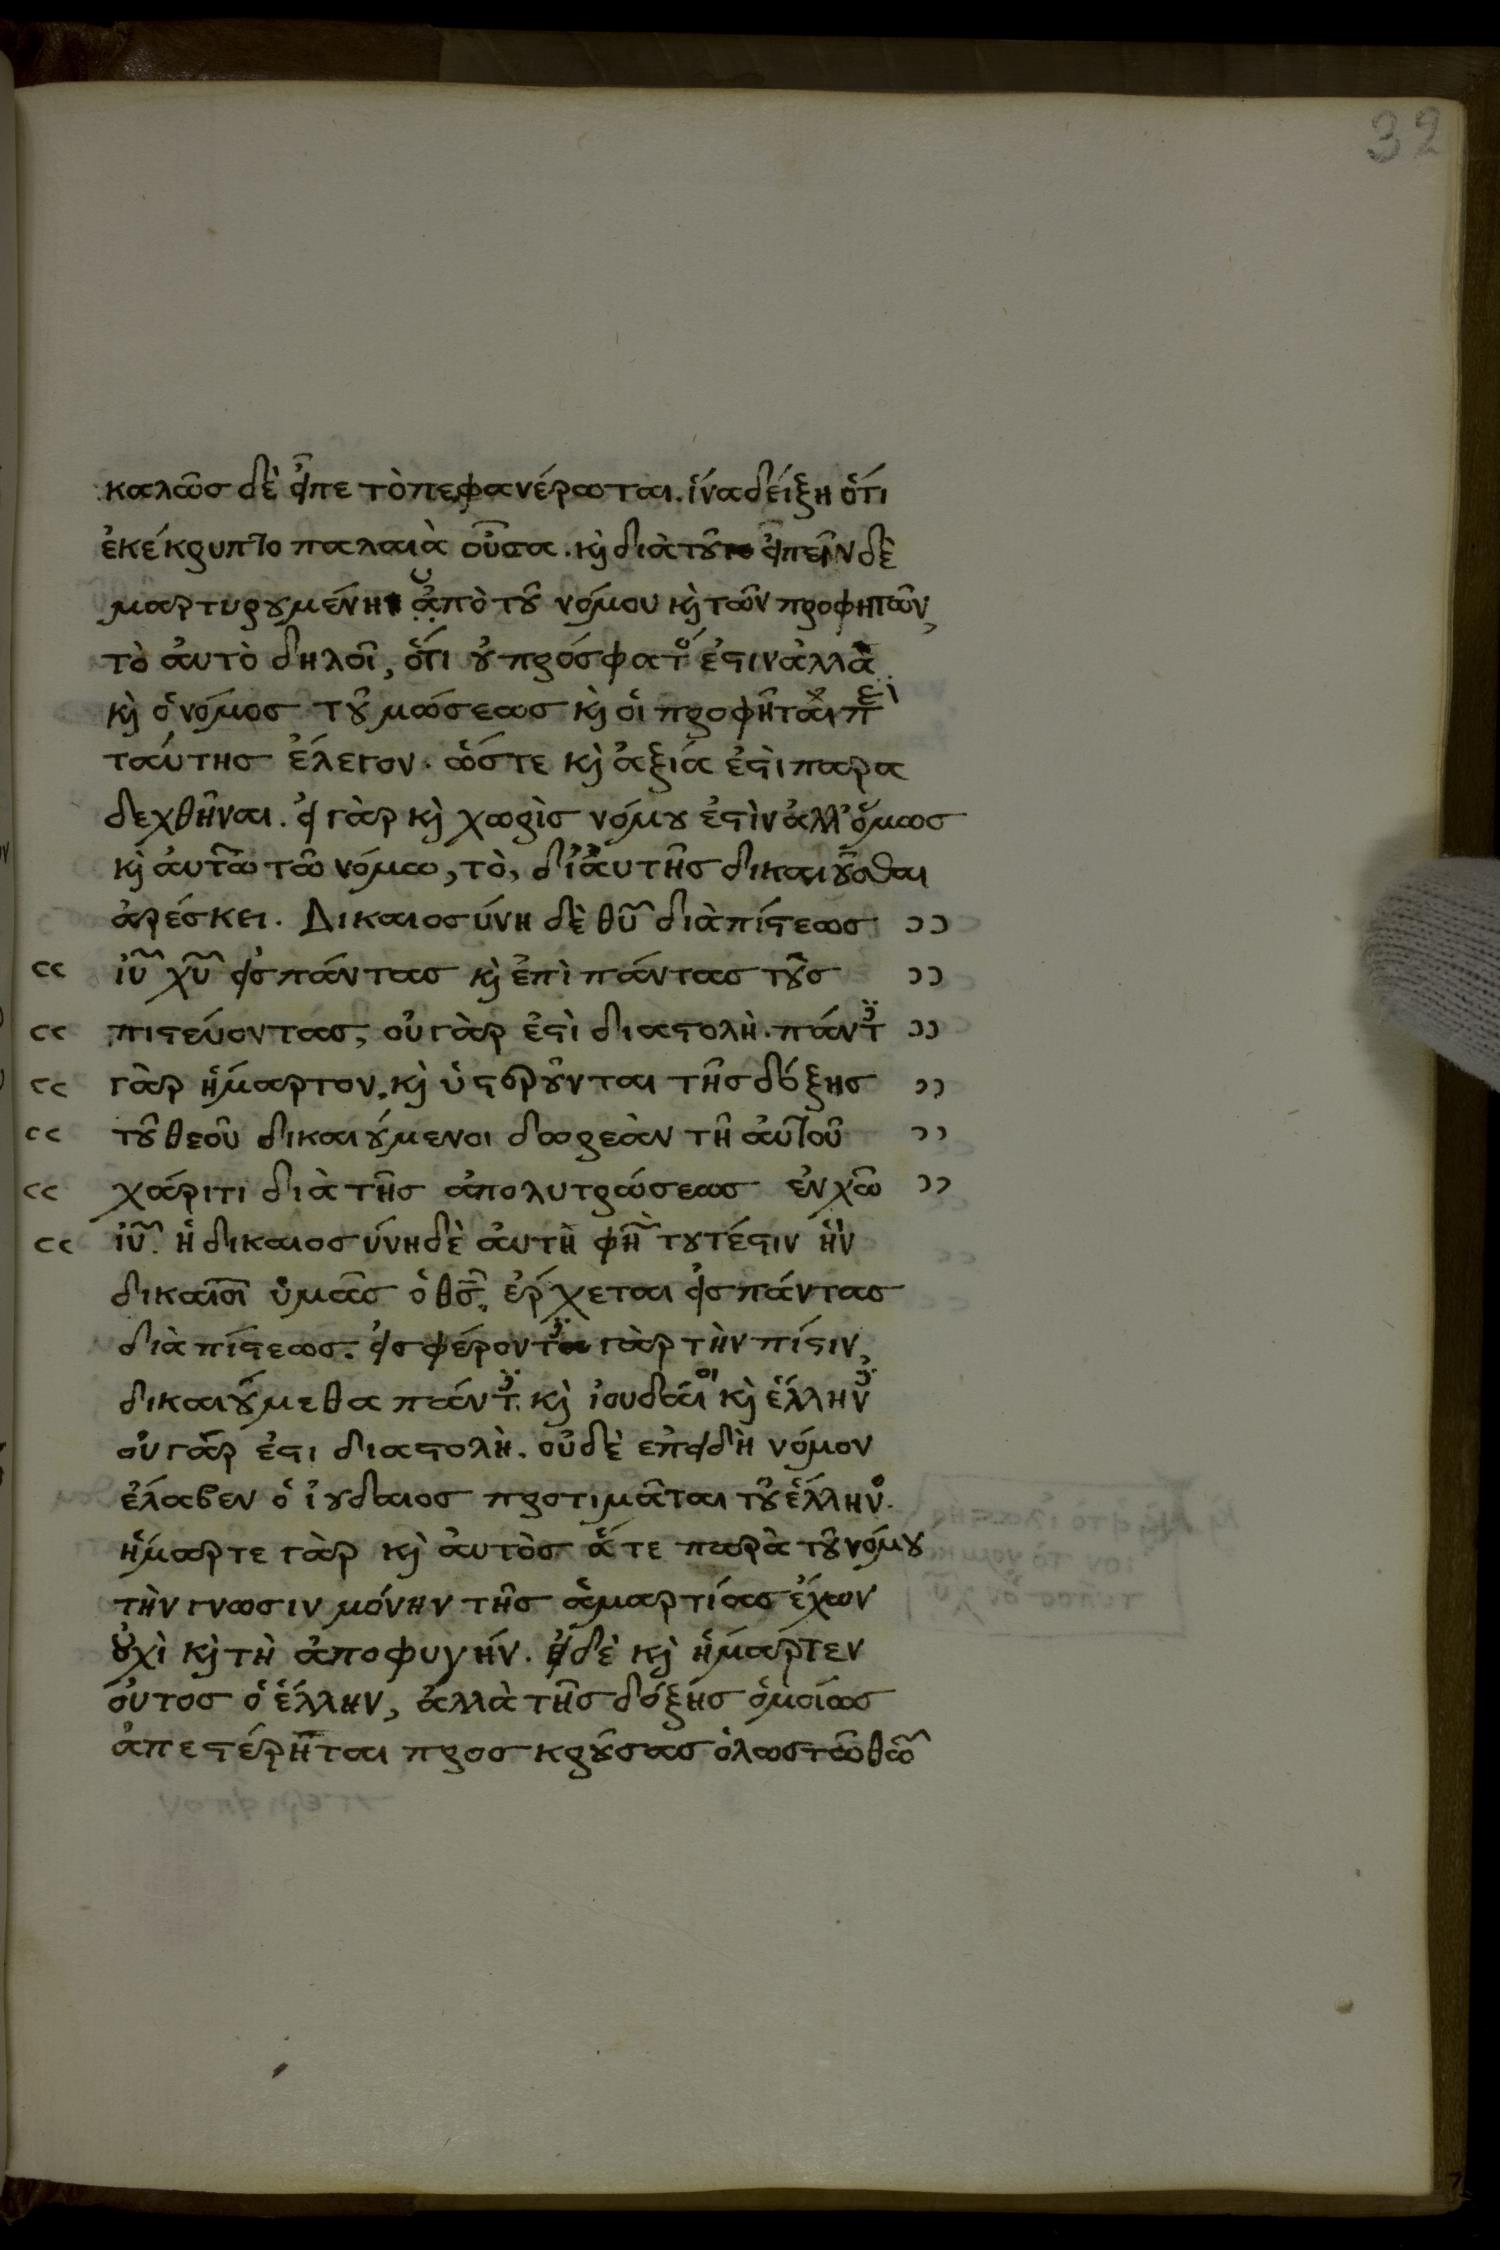 32
καλῶς δὲ εἶπε τὸ πεφανέρωται. ἵνα δείξη ὅτι
ἐκέκρυπτο παλαιὰ οὖσα. κὶ διὰ τοῦ εἰπεῖν δὲ
μαρτυρουμένη ὑπὸ τοῦ νόμου κὶ τῶν προφητῶν,
τὸ ἀυτὸ δηλοῖ, ὅτι οὐ πρόσφατός ἐστιν ἀλλὰ
κὶ ὁ νόμος τοῦ μώσεως κὶ οἱ προφῆται περὶ
ταύτης ἔλεγον. ὥστε κὶ ἀξιά ἐστὶ παρα
δεχθῆναι. εἰ γὰρ κὶ χωρὶς νόμου ἐστὶν ἀλλ' ὅμως
κὶ ἀυτῶ τῶ νόμω, τὸ, δι' ἀυτῆς δικαιοῦσθαι
ἀρέσκει. Δικαιοσύνη δὲ θῦ διὰ πίστεως ››
‹‹ ἰῦ χῦ εἰς πάντας κὶ ἐπὶ πάντας τοὺς ››
‹‹ πιστεύοντας, οὐ γὰρ ἐστὶ διαστολὴ. πάντες ››
‹‹ γὰρ ἥμαρτον, κὶ ὑστεροῦνται τῆς δόξης ››
‹‹ τοῦ θεοῦ δικαιούμενοι δωρεὰν τῆ ἀυτοῦ ››
‹‹ χάριτι διὰ τῆς ἀπολυτρώσεως ἐν χῶ ››
‹‹ ἰῦ. ἡ δικαιοσύνη δὲ ἀυτὴ φησὶ τουτέστιν ἣν
δικαιοῖ ὑμᾶς ὁ θς, ἔρχεται εἰς πάντας
διὰ πίστεως. εἰσφέροντες γὰρ τὴν πίστιν,
δικαιούμεθα πάντες. κὶ ἰουδαῖοι κὶ ἕλληνες
οὐ γάρ ἐστι διαστολὴ. οὐδὲ ἐπειδὴ νόμον
ἔλαβεν ὁ ἰουδαιος προτιμᾶται τοῦ ἕλληνος.
ἥμαρτε γὰρ κὶ ἀυτὸς ἅτε παρὰ τοῦ νόμου
τὴν γνωσιν μόνην τῆς ἁμαρτίας ἔχων
οὐχὶ κὶ τὴ ἀποφυγήν. εἰ δὲ κὶ ἥμαρτεν
οὗτος ὁ ἕλλην, ἀλλὰ τῆς δόξης ὁμοίως
ἀπεστέρηται προσκρούσας ὅλως τῶ θῶ